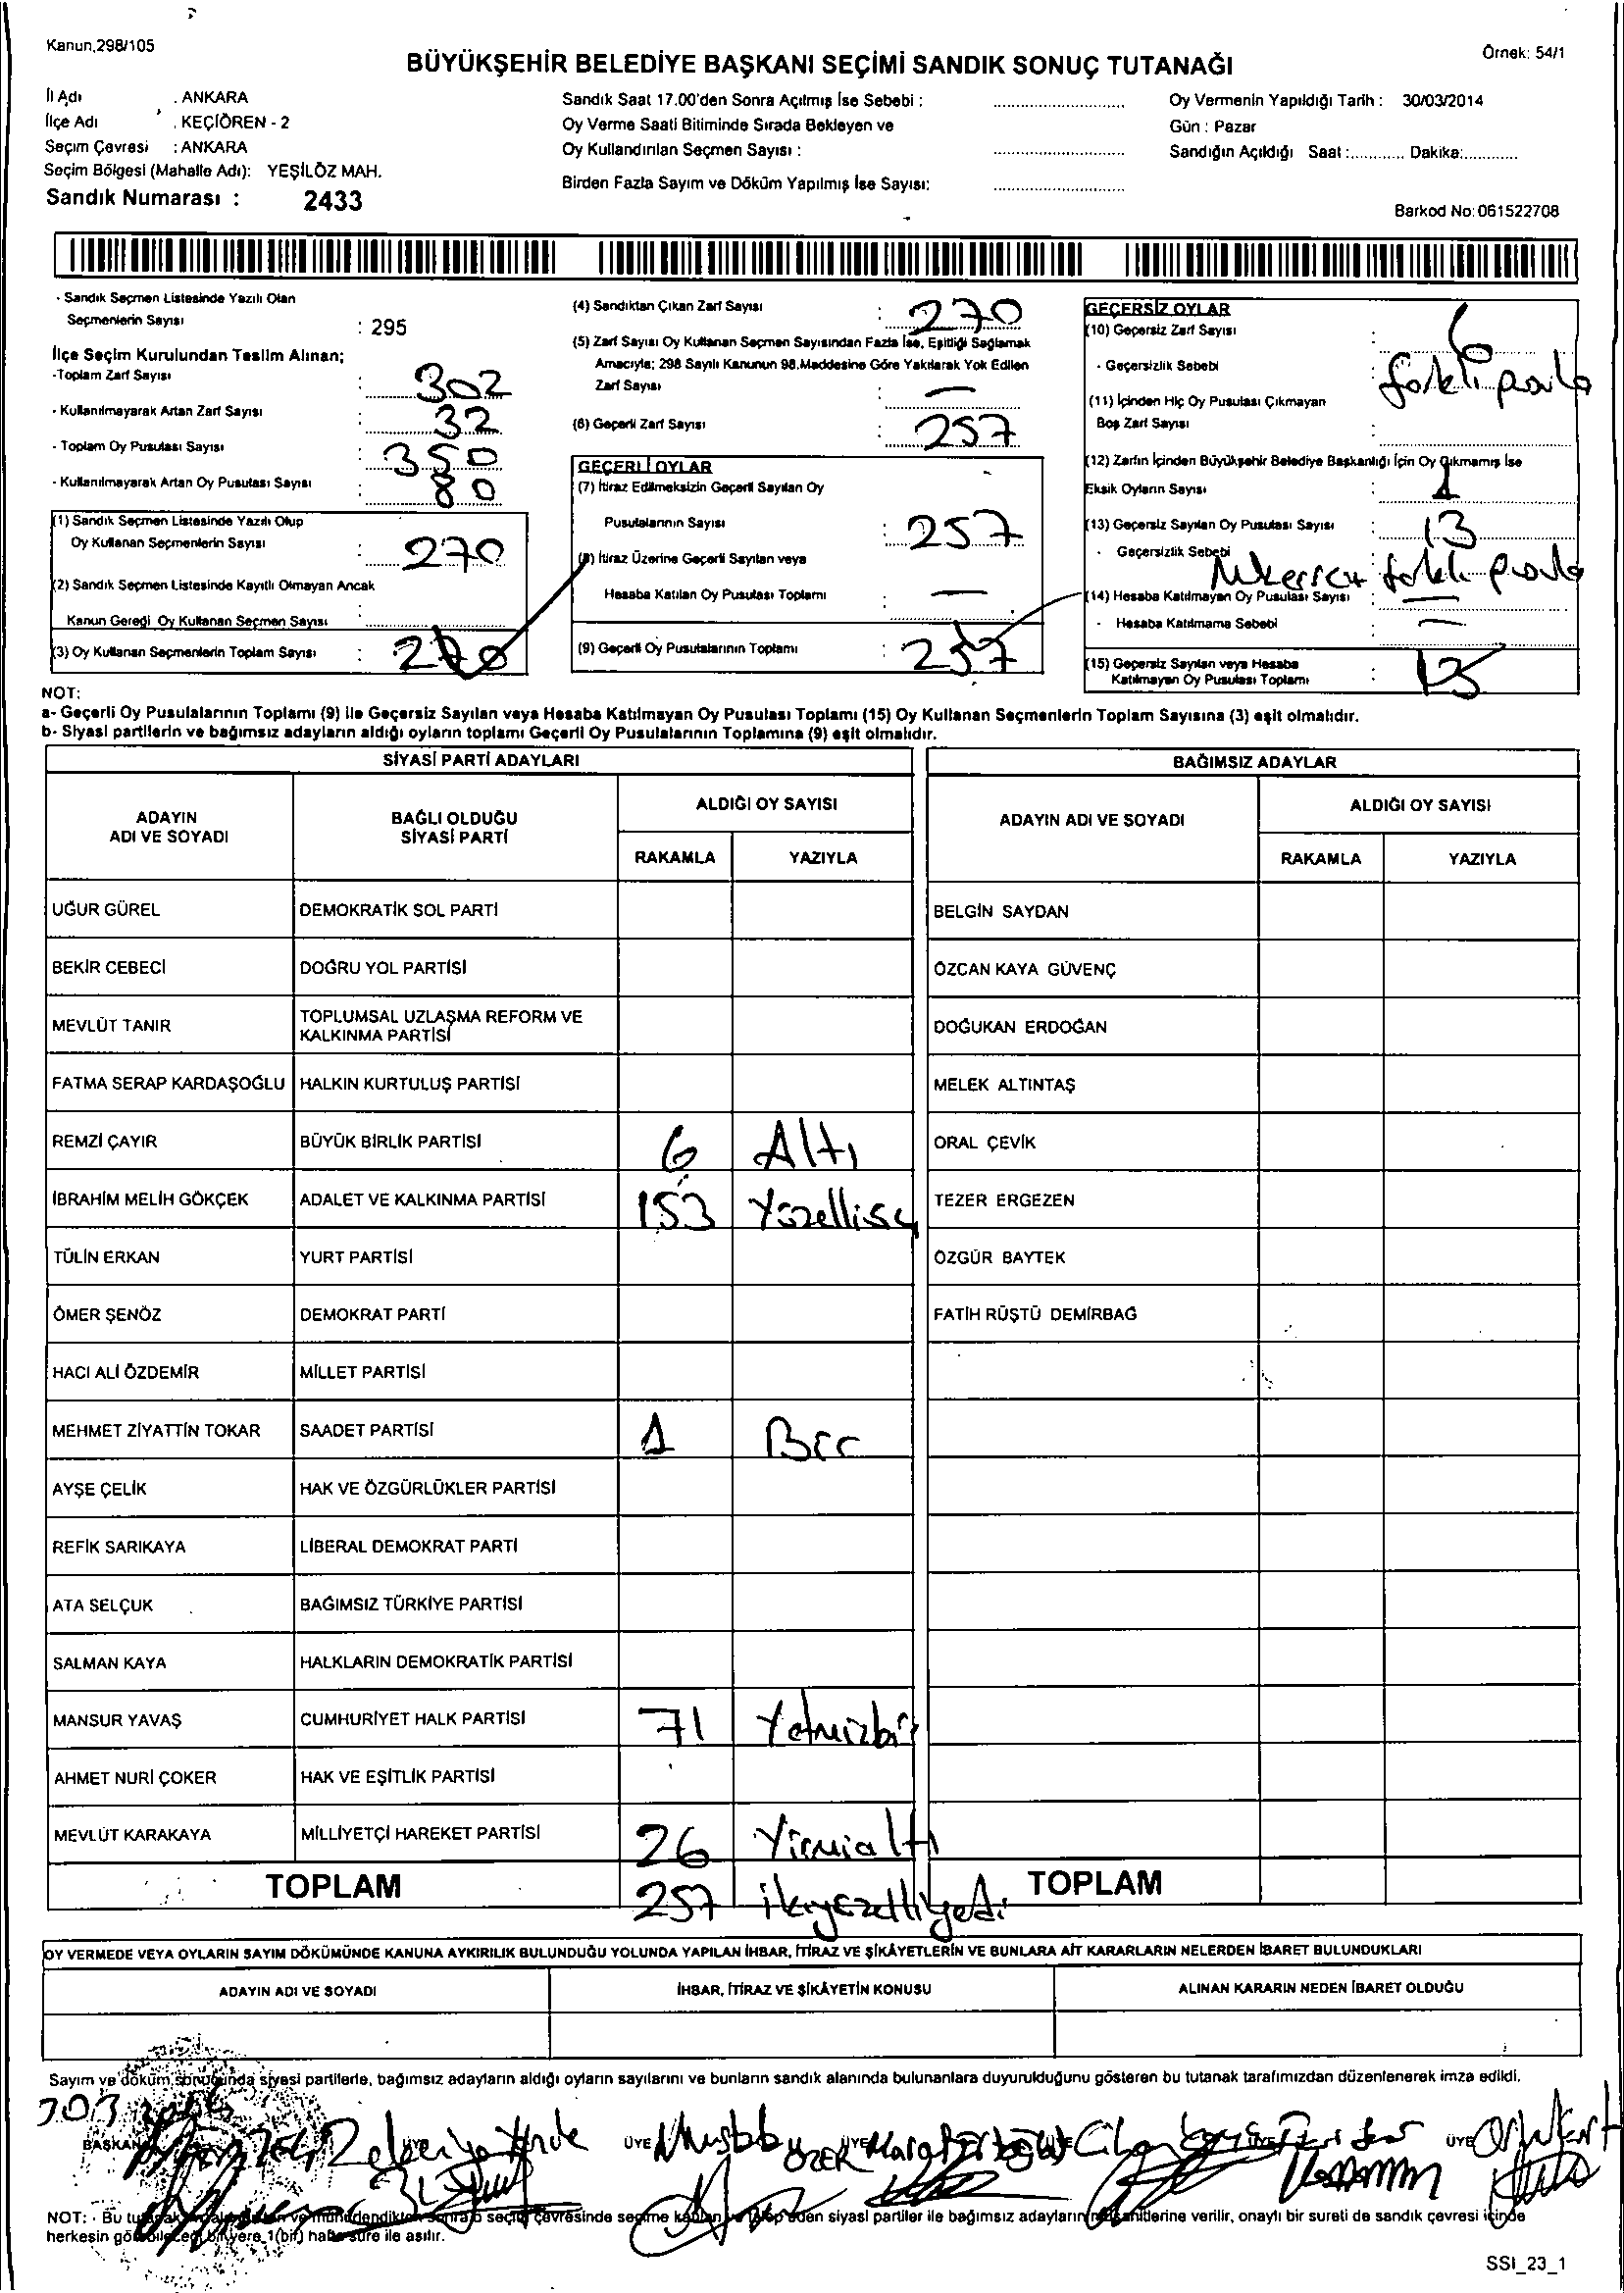 Kanun,298/105
Örnek: 54/1
BÜYÜKŞEHİR BELEDİYE BAŞKANI SEÇİMİ SANDIK SONUÇ TUTANAĞI
İl Adı : ANKARA
İlçe Adı : KEÇİÖREN - 2
Seçim Çevresi : ANKARA
Seçim Bölgesi (Mahalle Adı): YEŞİLÖZ MAH.
Sandık Numarası : 2433
Sandık Saat 17.00'den Sonra Açılmış İse Sebebi :
Oy Verme Saati Bitiminde Sırada Bekleyen ve
Oy Kullandırılan Seçmen Sayısı :
Birden Fazla Sayım ve Döküm Yapılmış İse Sayısı:
Oy Vermenin Yapıldığı Tarih : 30/03/2014
Gün : Pazar
Sandığın Açıldığı Saat :............ Dakika:............
Barkod No: 061522708
- Sandık Seçmen Listesinde Yazılı Olan
Seçmenlerin Sayısı : 295
İlçe Seçim Kurulundan Teslim Alınan;
-Toplam Zarf Sayısı : 302
- Kullanılmayarak Artan Zarf Sayısı : 32
- Toplam Oy Pusulası Sayısı : 350
- Kullanılmayarak Artan Oy Pusulası Sayısı : 80
(1) Sandık Seçmen Listesinde Yazılı Olup
Oy Kullanan Seçmenlerin Sayısı : 270
(2) Sandık Seçmen Listesinde Kayıtlı Olmayan Ancak
Kanun Gereği Oy Kullanan Seçmen Sayısı :
(3) Oy Kullanan Seçmenlerin Toplam Sayısı : 270
(4) Sandıktan Çıkan Zarf Sayısı : 270
(5) Zarf Sayısı Oy Kullanan Seçmen Sayısından Fazla İse, Eşitliği Sağlamak
Amacıyla; 298 Sayılı Kanunun 98.Maddesine Göre Yakılarak Yok Edilen
Zarf Sayısı : —
(6) Geçerli Zarf Sayısı : 257
GEÇERLİ OYLAR
(7) İtiraz Edilmeksizin Geçerli Sayılan Oy
Pusulalarının Sayısı : 257
(8) İtiraz Üzerine Geçerli Sayılan veya
Hesaba Katılan Oy Pusulası Toplamı : —
(9) Geçerli Oy Pusulalarının Toplamı : 257
GEÇERSİZ OYLAR
(10) Geçersiz Zarf Sayısı : 6
- Geçersizlik Sebebi : farklı parti
(11) İçinden Hiç Oy Pusulası Çıkmayan
Boş Zarf Sayısı :
(12) Zarfın İçinden Büyükşehir Belediye Başkanlığı İçin Oy Çıkmamış İse
Eksik Oyların Sayısı : 1
(13) Geçersiz Sayılan Oy Pusulası Sayısı : 13
- Geçersizlik Sebebi farklı
(14) Hesaba Katılmayan Oy Pusulası Sayısı : —
- Hesaba Katılmama Sebebi : —
(15) Geçersiz Sayılan veya Hesaba
Katılmayan Oy Pusulası Toplamı :
NOT:
a- Geçerli Oy Pusulalarının Toplamı (9) ile Geçersiz Sayılan veya Hesaba Katılmayan Oy Pusulası Toplamı (15) Oy Kullanan Seçmenlerin Toplam Sayısına (3) eşit olmalıdır.
b- Siyasi partilerin ve bağımsız adayların aldığı oyların toplamı Geçerli Oy Pusulalarının Toplamına (9) eşit olmalıdır.
SİYASİ PARTİ ADAYLARI
ADAYIN ADI VE SOYADI
BAĞLI OLDUĞU SİYASİ PARTİ
ALDIĞI OY SAYISI
RAKAMLA YAZIYLA
UĞUR GÜREL DEMOKRATİK SOL PARTİ
BEKİR CEBECİ DOĞRU YOL PARTİSİ
MEVLÜT TANIR TOPLUMSAL UZLAŞMA REFORM VE
KALKINMA PARTİSİ
FATMA SERAP KARDAŞOĞLU HALKIN KURTULUŞ PARTİSİ
REMZİ ÇAYIR BÜYÜK BİRLİK PARTİSİ 6 Altı
İBRAHİM MELİH GÖKÇEK ADALET VE KALKINMA PARTİSİ 153 Yüzelliüç
TÜLİN ERKAN YURT PARTİSİ
ÖMER ŞENÖZ DEMOKRAT PARTİ
HACI ALİ ÖZDEMİR MİLLET PARTİSİ
MEHMET ZİYATTİN TOKAR SAADET PARTİSİ 1 Bir
AYŞE ÇELİK HAK VE ÖZGÜRLÜKLER PARTİSİ
REFİK SARIKAYA LİBERAL DEMOKRAT PARTİ
ATA SELÇUK BAĞIMSIZ TÜRKİYE PARTİSİ
SALMAN KAYA HALKLARIN DEMOKRATİK PARTİSİ
MANSUR YAVAŞ CUMHURİYET HALK PARTİSİ 71 Yetmizbir
AHMET NURİ ÇOKER HAK VE EŞİTLİK PARTİSİ
MEVLÜT KARAKAYA MİLLİYETÇİ HAREKET PARTİSİ 26 Yirmialtı
TOPLAM 257 ikiyüzelliyedi
BAĞIMSIZ ADAYLAR
ADAYIN ADI VE SOYADI
ALDIĞI OY SAYISI
RAKAMLA YAZIYLA
BELGİN SAYDAN
ÖZCAN KAYA GÜVENÇ
DOĞUKAN ERDOĞAN
MELEK ALTINTAŞ
ORAL ÇEVİK
TEZER ERGEZEN
ÖZGÜR BAYTEK
FATİH RÜŞTÜ DEMİRBAĞ
TOPLAM
OY VERMEDE VEYA OYLARIN SAYIM DÖKÜMÜNDE KANUNA AYKIRILIK BULUNDUĞU YOLUNDA YAPILAN İHBAR, İTİRAZ VE ŞİKÂYETLERİN VE BUNLARA AİT KARARLARIN NELERDEN İBARET BULUNDUKLARI
ADAYIN ADI VE SOYADI
İHBAR, İTİRAZ VE ŞİKÂYETİN KONUSU
ALINAN KARARIN NEDEN İBARET OLDUĞU
Sayım ve döküm sonucunda siyasi partilerle, bağımsız adayların aldığı oyların sayılarını ve bunların sandık alanında bulunanlara duyurulduğunu gösteren bu tutanak tarafımızdan düzenlenerek imza edildi.
BAŞKAN ÜYE ÜYE ÜYE
NOT: - Bu seçim çevresinde seçime katılan ve talep eden siyasi partiler ile bağımsız adayların müşahitlerine verilir, onaylı bir sureti de sandık çevresi içinde
herkesin görebileceği bir yere 1(bir) hafta süre ile asılır.
SSI_23_1